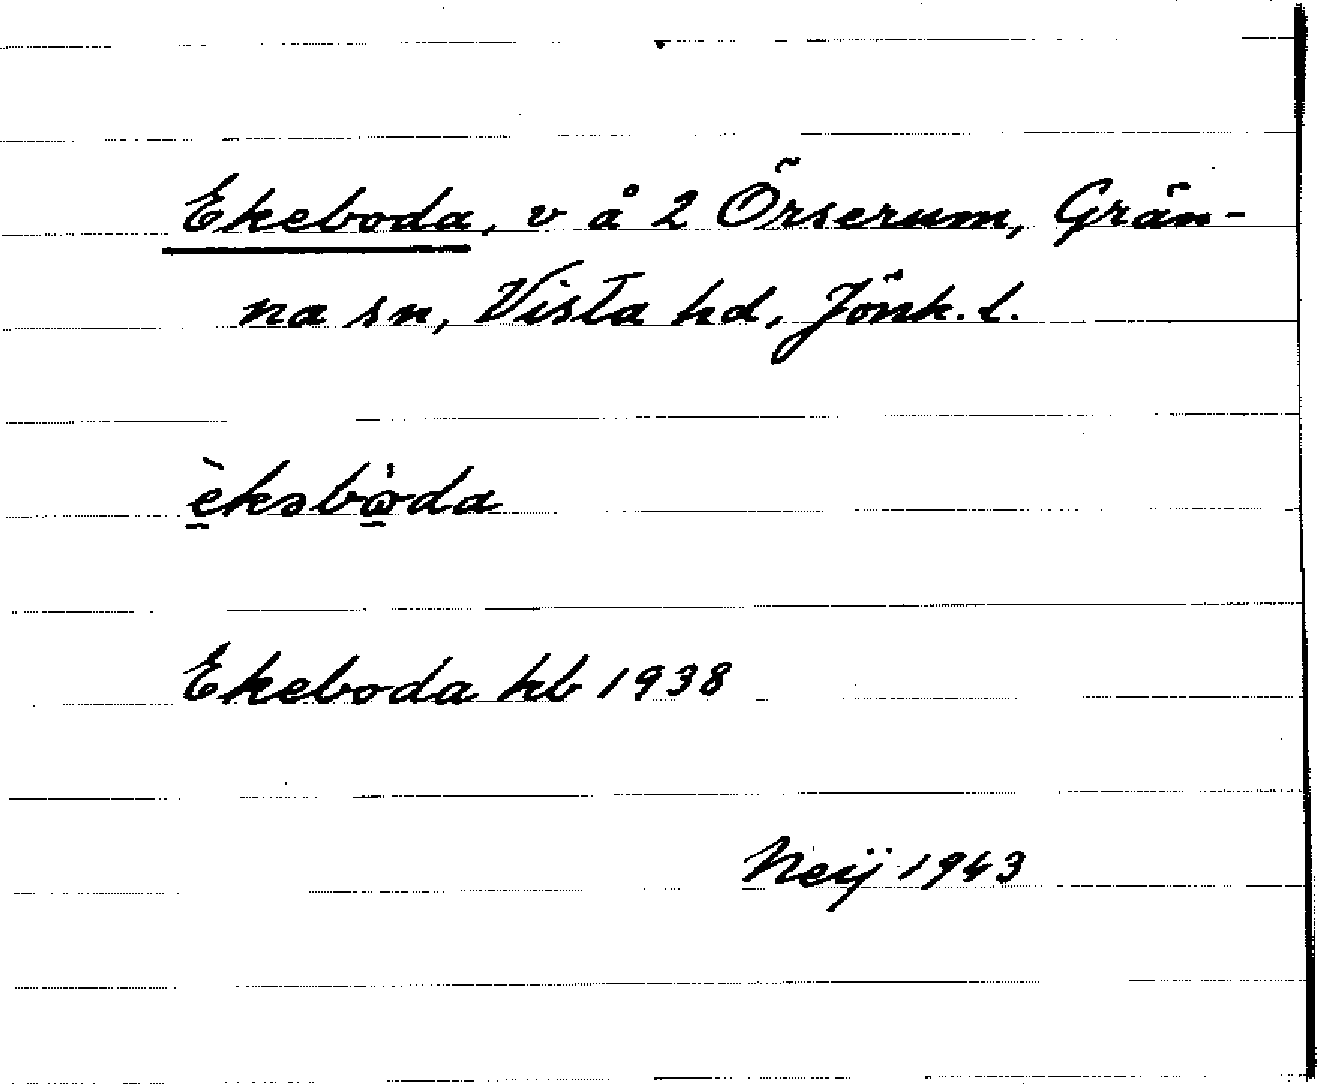 Ekeboda, v å 2 Örserum, Grän-
na sn, Vista hd, Jönk. l.
Ekeboda hb 1938
Neij 1943